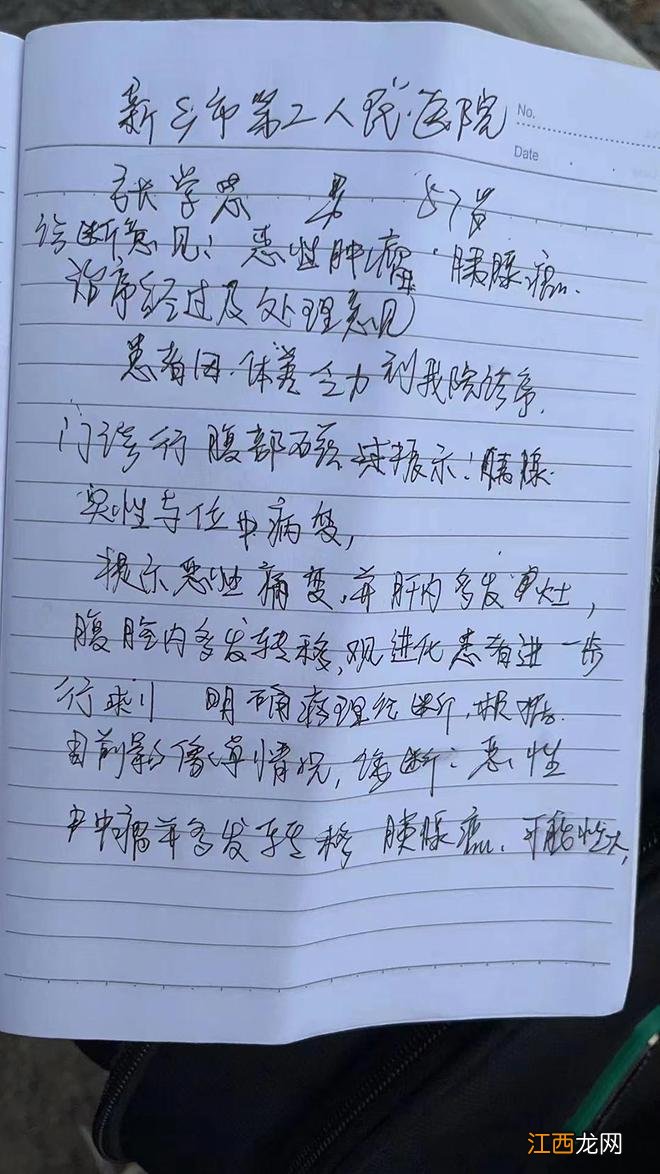 新乡市第二人民医院
No.
Date
张学思 男 57岁
诊断意见：恶性肿瘤 胰腺癌.
治疗经过及处理意见
患者因.体差乏力到我院诊疗.
门诊行腹部 提示：胰腺
实性占位 病变,
提示恶性病变,并肝内多发 灶,
腹腔内多发转移,现 患者进一步
行 明确病理诊断,根据.
目前影像 情况,诊断：恶性
并多发转移 胰腺癌.可能性大,
江西龙网